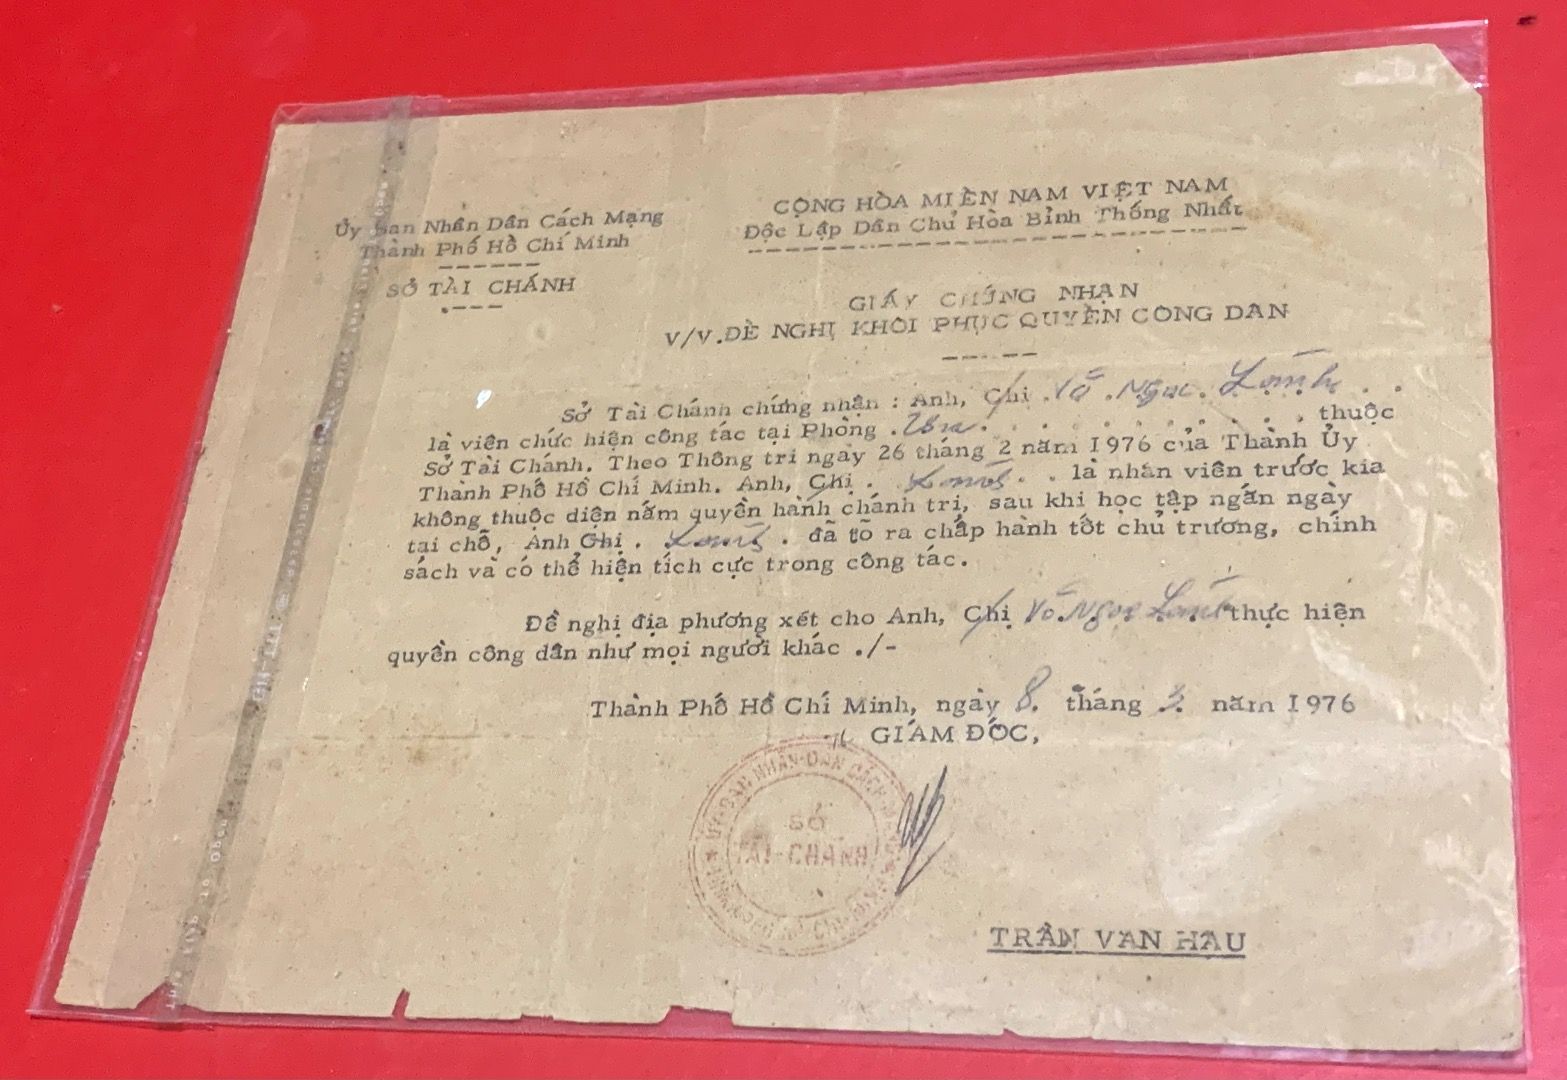 Ủy Ban Nhân Dân Cách Mạng
Thành Phố Hồ Chí Minh
SỞ TÀI CHÁNH
CỘNG HÒA MIỀN NAM VIỆT NAM
Độc Lập Dân Chủ Hòa Bình Thống Nhất
GIẤY CHỨNG NHẬN
V/V.ĐỀ NGHỊ KHÔI PHỤC QUYỀN CÔNG DÂN
Sở Tài Chánh chứng nhận : Anh, Chị . Võ . Ngọc .
là viên chức hiện công tác tại Phòng . thuộc
Sở Tài Chánh. Theo Thông tri ngày 26 tháng 2 năm 1976 của Thành Ủy
Thành Phố Hồ Chí Minh. Anh, Chị . . là nhân viên trước kia
không thuộc diện nắm quyền hành chánh trị, sau khi học tập ngắn ngày
tại chỗ, Anh Chị . . đã tỏ ra chấp hành tốt chủ trương, chính
sách và có thể hiện tích cực trong công tác.
Đề nghị địa phương xét cho Anh, Chị Võ Ngọc thực hiện
quyền công dân như mọi người khác ./-
Thành Phố Hồ Chí Minh, ngày 8. tháng 3. năm 1976
GIÁM ĐỐC,
ỦY-BAN NHÂN-DÂN CÁCH-MẠNG
SỞ
TÀI-CHÁNH
THÀNH-PHỐ HỒ-CHÍ-MINH
TRẦN VĂN HẬU